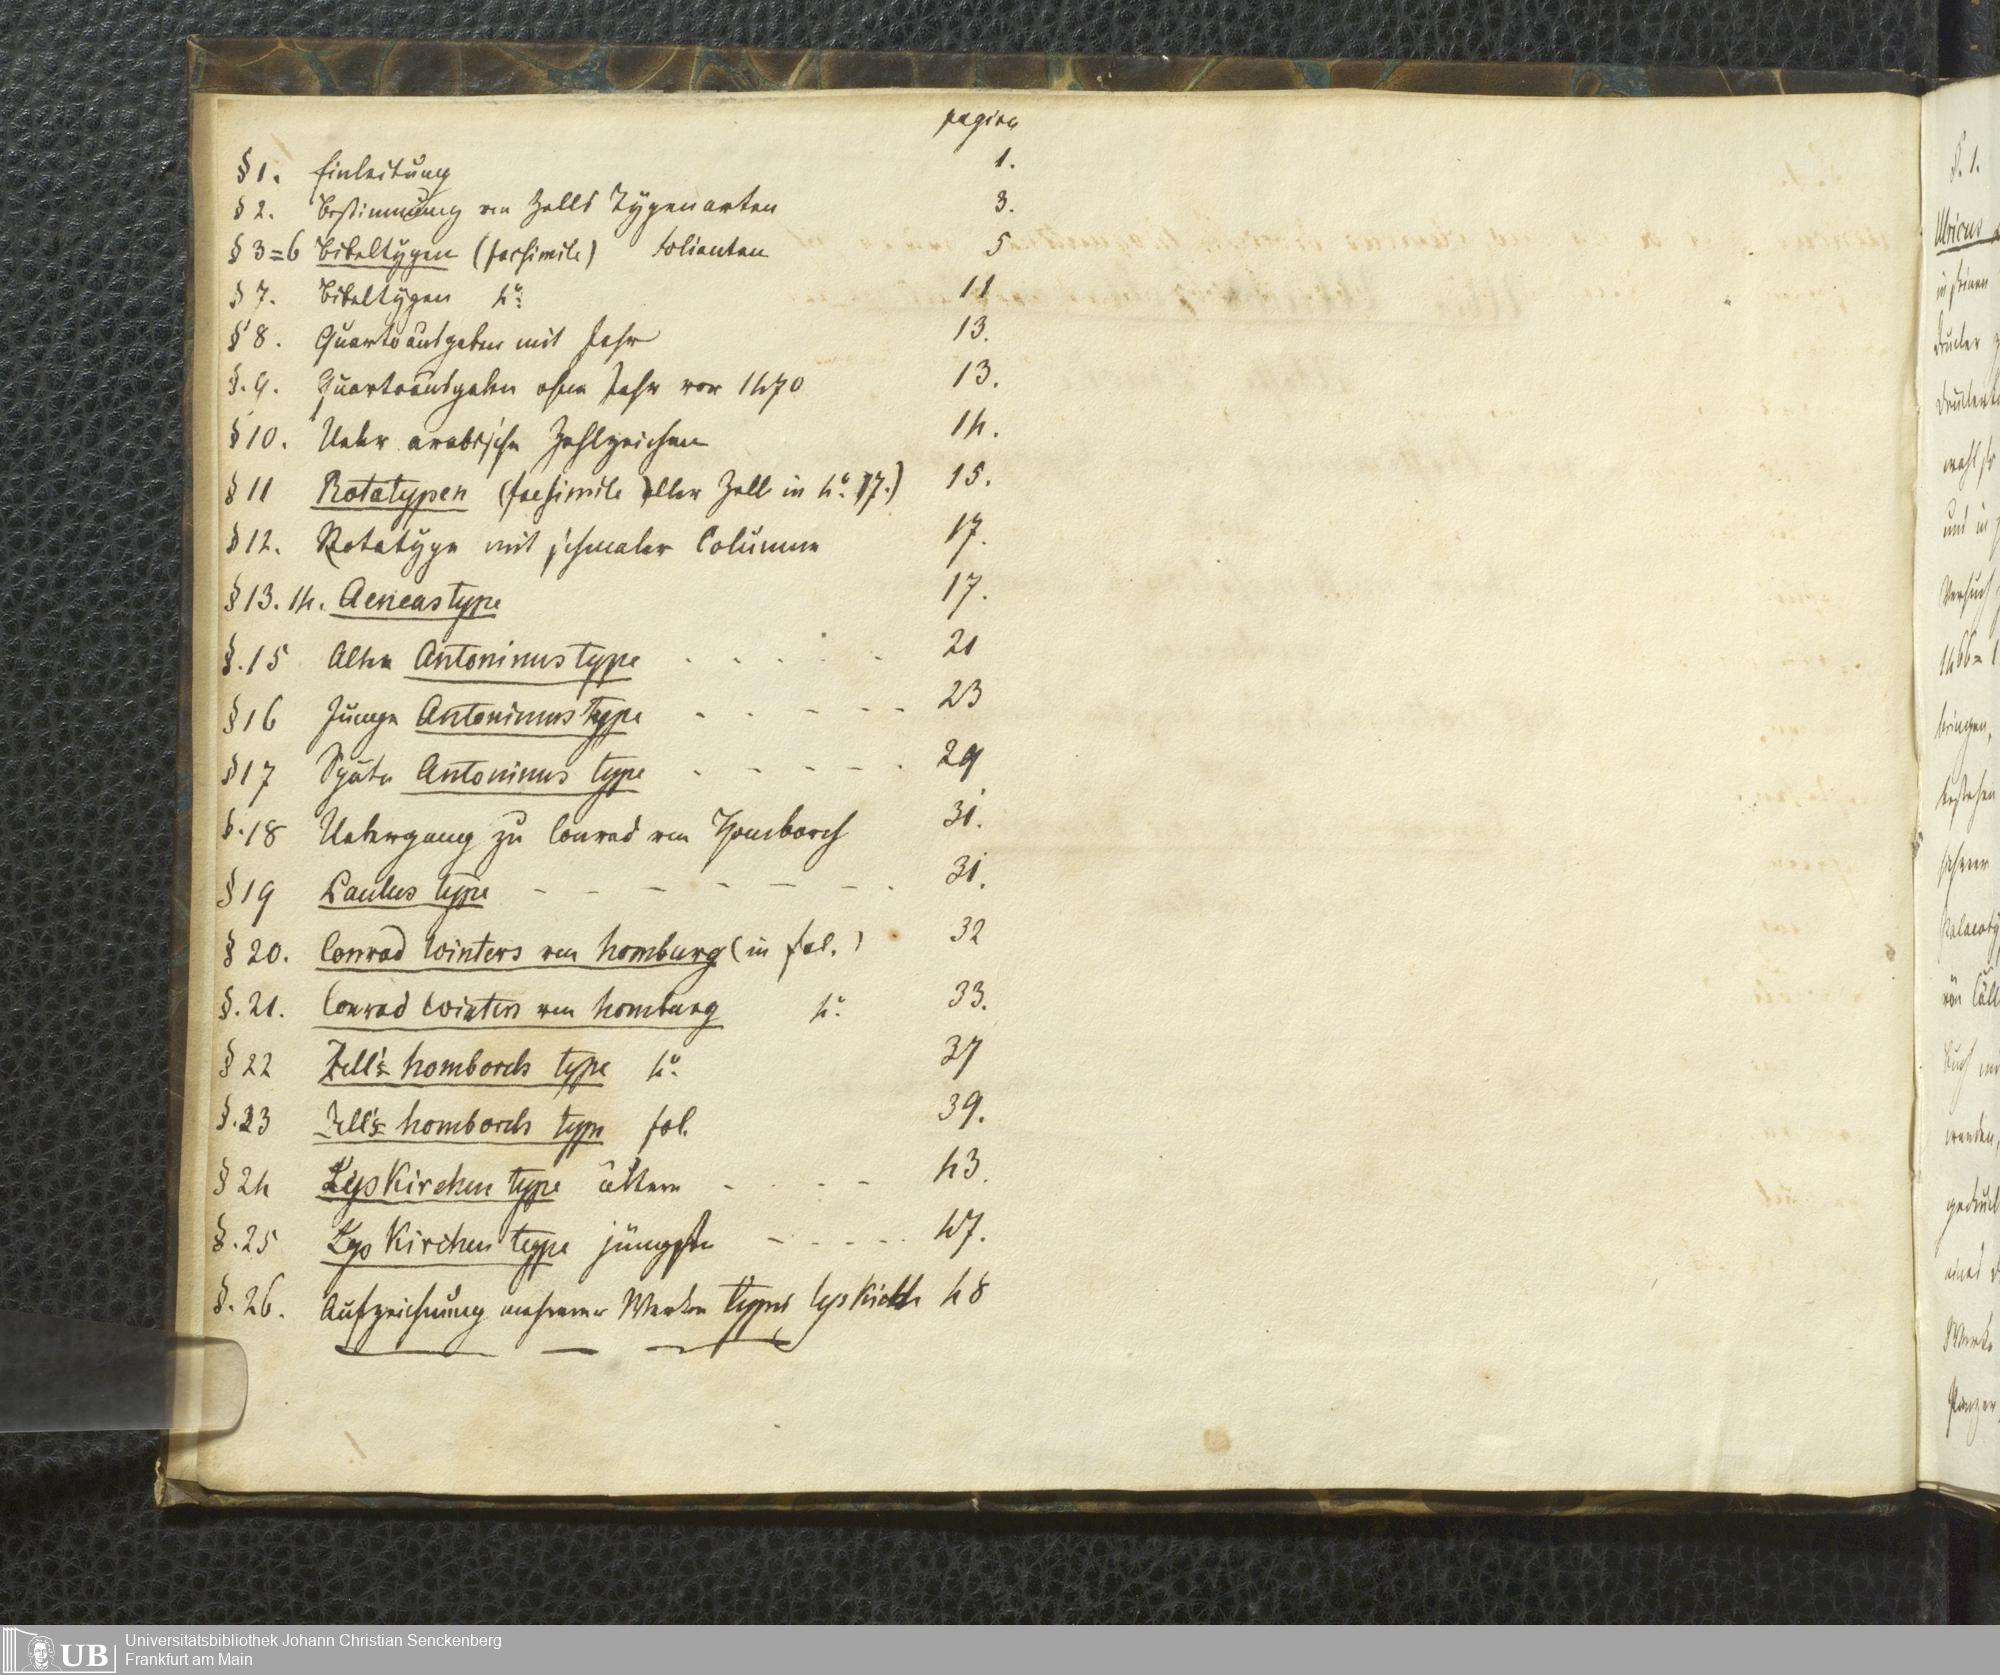 pagina
§ 1. Einleitung 1.
§ 2. Bestimmung von Zells Typenarten 3.
§ 3=6 Bibeltypen (facsimile) Folianten 5
§ 7. Bibeltypen 4º. 11
§ 8. Quartoausgaben mit Jahr 13.
§. 9. Quartoausgaben ohne Jahr vor 1470 13.
§ 10. Ueber arabische Zahlzeichen 14.
§ 11 Rotatypen (facsimile aller Zell in 4º. 17.) 15.
§ 12. Rotatype mit schmaler Columne 17.
§ 13. 14. Aeneastype 17.
§. 15 Alte Antoninustype 21
§ 16 Junge Antoninustype 23
§ 17 Späte Antoninus type 29
§. 18 Uebergang zu Conrad von Homborch 31.
§ 19 Paulus type 31.
§ 20. Conrad Winters von Homburg (in fol.) 32
§. 21. Conrad Winters von Homburg 4º. 33.
§ 22 Zell's Homborch type 4º. 37
§. 23 Zell's Homborch type fol. 39.
§ 24 Lyskirchen type ältere 43.
§. 25 Lyskirchen type jüngste 47.
§. 26. Aufzeichnung mehrerer Werke typis 48
§. 1.
Ulricus
in seinen
Drucker
wohl
und in
Versuch
1466=1
bringen,
bestehen
von
Buch
wurden,
eines
Werke
Panzer
UB
Universitätsbibliothek Johann Christian Senckenberg
Frankfurt am Main